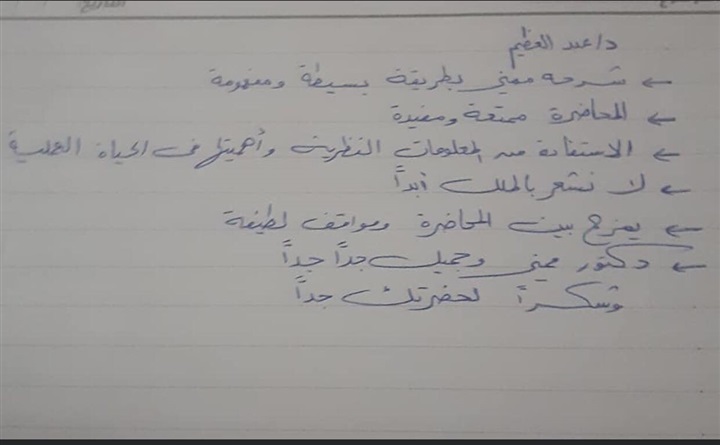 د/عبد العظيم
← شرحه مميز بطريقة بسيطة ومفهومة
← المحاضرة ممتعة ومفيدة
← الاستفادة من المعلومات النظرية وأهميتها فى الحياة العملية
← لا نشعر بالملل أبداً
← يمزج بين المحاضرة ومواقف لطيفة
← دكتور مميز وجميل جداً جداً
وشكراً لحضرتك جداً